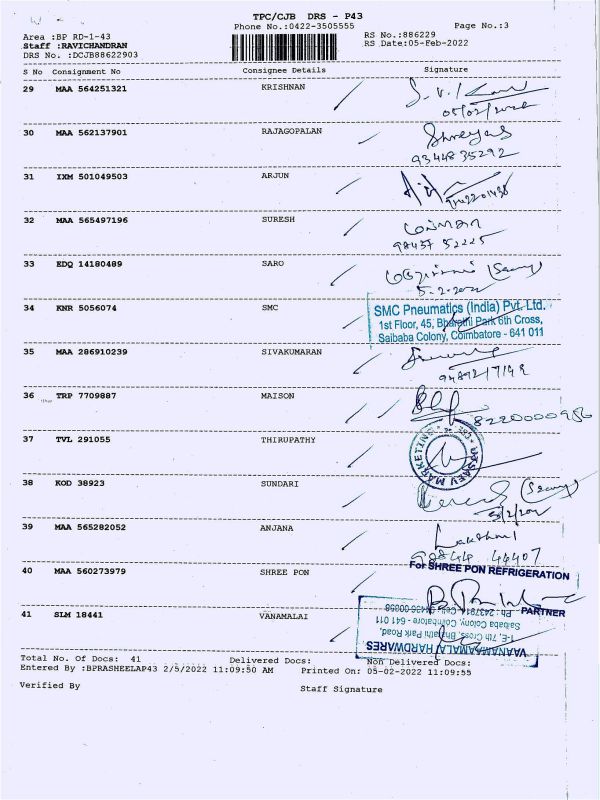 TPC/CJB DRS - P43
Phone No.:0422-3505555
Page No.:3
Area :BP RD-1-43
RS No.:886229
Staff :RAVICHANDRAN
RS Date:05-Feb-2022
DRS No. :DCJB88622903
S No Consignment No Consignee Details Signature
29 MAA 564251321 KRISHNAN
05/02/2022
30 MAA 562137901 RAJAGOPALAN Shreyas
9344835292
31 IXM 501049503 ARJUN
32 MAA 565497196 SURESH
98437 52225
33 EDQ 14180489 SARO
5-2-2022
34 KNR 5056074 SMC SMC Pneumatics (India) Pvt. Ltd.
1st Floor, 45, Bharathi Park 6th Cross,
Saibaba Colony, Coimbatore - 641 011
35 MAA 286910239 SIVAKUMARAN
36 TRP 7709887 MAISON
8220000986
37 TVL 291055 THIRUPATHY
MARKETING
38 KOD 38923 SUNDARI
5/2/202
39 MAA 565282052 ANJANA Lakshmi
98844 44407
40 MAA 560273979 SHREE PON For SHREE PON REFRIGERATION
PARTNER
41 SLM 18441 VANAMALAI
VAANAMAALAI HARDWARES
I-E, 7th Cross, Bharathi Park Road,
Saibaba Colony, Coimbatore - 641 011
Total No. Of Docs: 41 Delivered Docs: Non Delivered Docs:
Entered By :BPRASHEELAP43 2/5/2022 11:09:50 AM Printed On: 05-02-2022 11:09:55
Verified By Staff Signature